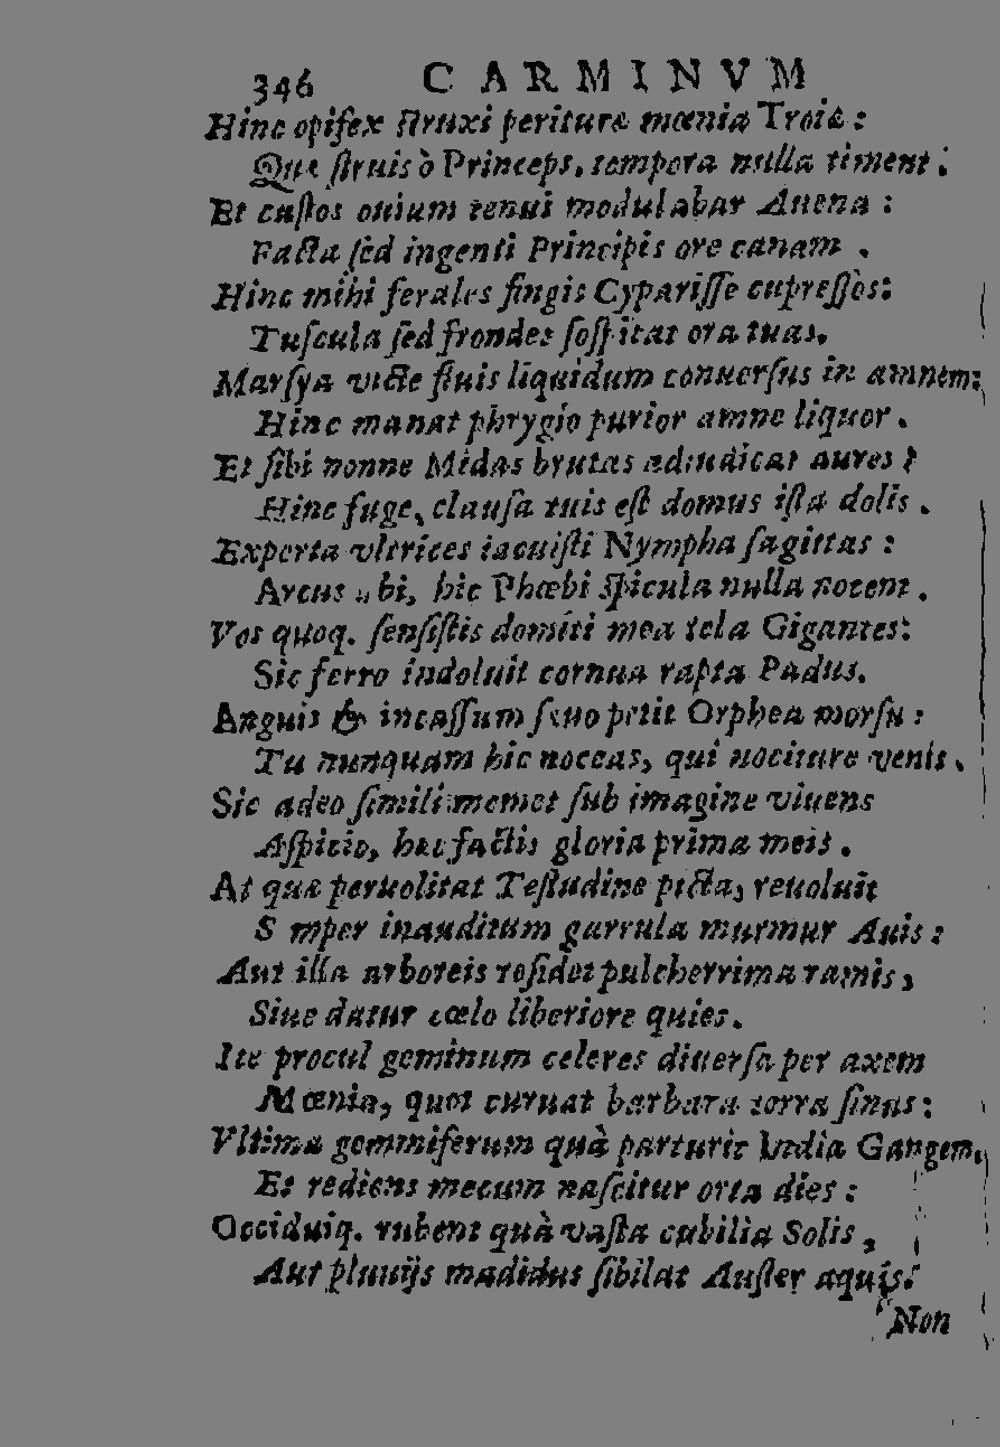 346 CARMINVM
Hinc opifex struxi periturę mœnia Troię:
Quę struis ò Princeps, tempora nulla timent:
Et custos ouium tenui modulabar Auena:
Facta sed ingenti Principis ore canam.
Hinc mihi ferales fingis Cyparisse cupressos:
Tuscula sed frondes sospitat ora tuas.
Marsya victe fluis liquidum conuersus in amnem:
Hinc manat phrygio purior amne liquor.
Et sibi nonne Midas brutas adiudicat aures?
Hinc fuge, clausa tuis est domus ista dolis.
Experta vltrices iacuisti Nympha sagittas:
Arcus vbi, hic Phœbi spicula nulla nocent.
Vos quoq. sensistis domiti mea tela Gigantes:
Sic ferro indoluit cornua rapta Padus.
Anguis & incassum sęuo petit Orphea morsu:
Tu nunquam hic noceas, qui nociture venis.
Sic adeo simili memet sub imagine viuens
Aspicio, hęc factis gloria prima meis.
At quæ peruolitat Testudine picta, reuoluit
S mper inauditum garrula murmur Auis:
Aut illa arboreis residet pulcherrima ramis,
Siue datur cœlo liberiore quies.
Ite procul geminum celeres diuersa per axem
Mœnia, quot curuat barbara terra sinus:
Vltima gemmiferum quà parturit India Gangem,
Et rediens mecum nascitur orta dies:
Occiduiq. rubent quà vasta cubilia Solis,
Aut pluuijs madidus sibilat Auster aquis:
Non